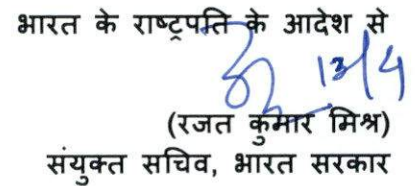 भारत के राष्ट्रपति के आदेश से
13/4
(रजत कुमार मिश्र)
संयुक्त सचिव, भारत सरकार